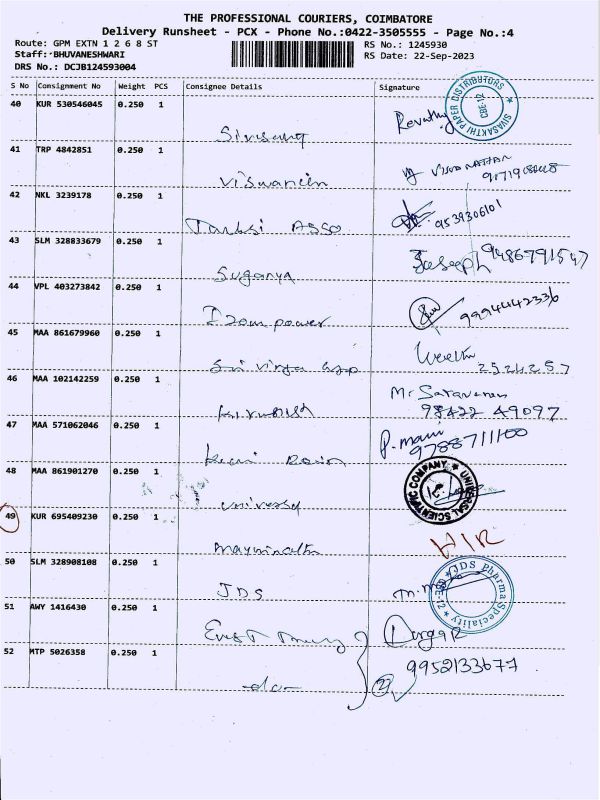 THE PROFESSIONAL COURIERS, COIMBATORE
Delivery Runsheet - PCX - Phone No.:0422-3505555 - Page No.:4
Route: GPM EXTN 1 2 6 8 ST
RS No.: 1245930
Staff: BHUVANESHWARI
RS Date: 22-Sep-2023
DRS No.: DCJB124593004
S No Consignment No Weight PCS Consignee Details Signature
40 KUR 530546045 0.250 1
Revathy
SIVASAKTHI PAPER DISTRIBUTORS
CBE-12
41 TRP 4842851 0.250 1
VISWANATHAN
42 NKL 3239178 0.250 1
Asso
9539306101
43 SLM 328833679 0.250 1
Suganya
Joseph 9486791547
44 VPL 403273842 0.250 1
power
9994442336
45 MAA 861679960 0.250 1
2524257
46 MAA 102142259 0.250 1
Mr Saravanan
98422 49097
47 MAA 571062046 0.250 1
P. mani
9788711100
48 MAA 861901270 0.250 1
universal
UNIVERSAL SCIENTIFIC COMPANY
49 KUR 695409230 0.250 1
50 SLM 328908108 0.250 1
JDS
JDS Pharma Speciality
51 AWY 1416430 0.250 1
52 MTP 5026358 0.250 1
9952133677
-do-